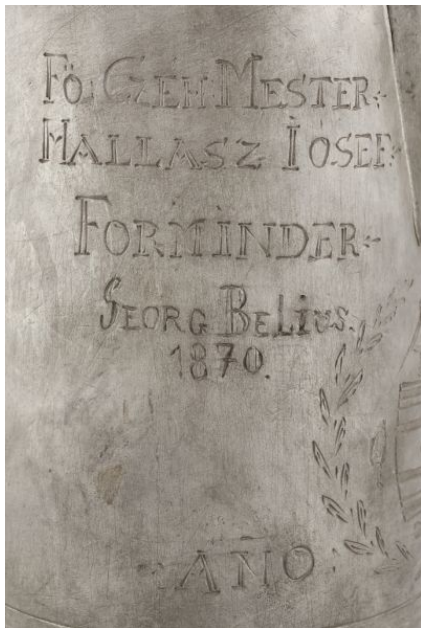 Fö CZEH MESTER
HALLASZ IOSEF
FORMINDER
GEORG BELIUS.
1870.
ANO